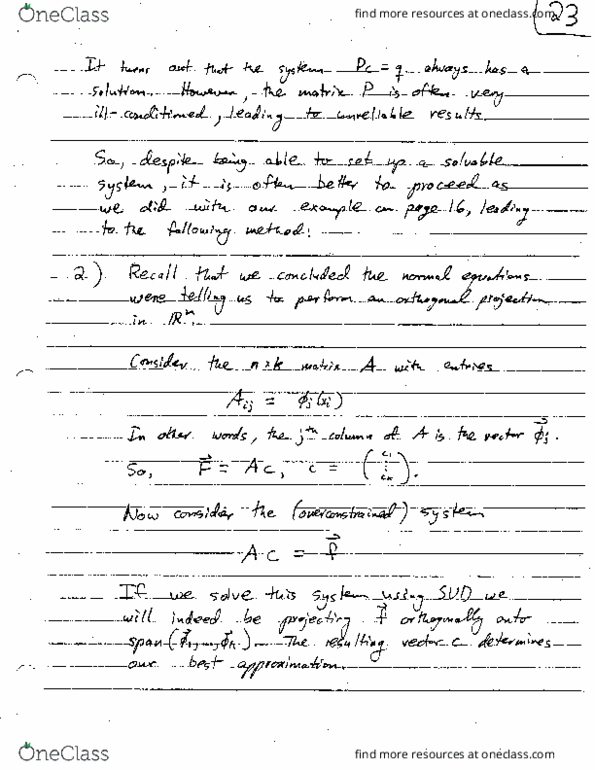 OneClass
find more resources at oneclass.com
23
It turns out that the system Pc = q always has a
solution. However, the matrix P is often very
ill-conditioned, leading to unreliable results.
So, despite being able to set up a solvable
system, it is often better to proceed as
we did with our example on page 16, leading
to the following method:
2) Recall that we concluded the normal equations
were telling us to perform an orthogonal projection
in ℝⁿ.
Consider the n×k matrix A with entries
Aᵢⱼ = ϕⱼ(xᵢ)
In other words, the jᵗʰ column of A is the vector ϕ⃗ⱼ.
So, F⃗ = Ac, c = (c₁ ⋮ cₖ).
Now consider the (overconstrained) system
A·c = f⃗
If we solve this system using SVD we
will indeed be projecting f⃗ orthogonally onto
span(ϕ⃗₁, ..., ϕ⃗ₖ). The resulting vector c determines
our best approximation.
OneClass
find more resources at oneclass.com